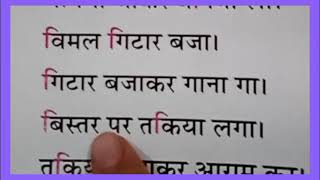 विमल गिटार बजा।
गिटार बजाकर गाना गा।
बिस्तर पर तकिया लगा।
आराम कर।